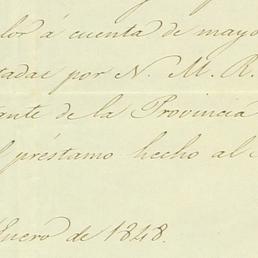 lor á cuenta de mayo
tadas por N. M. R.
ante de la Provincia
l préstamo hecho al
Enero de 1848.